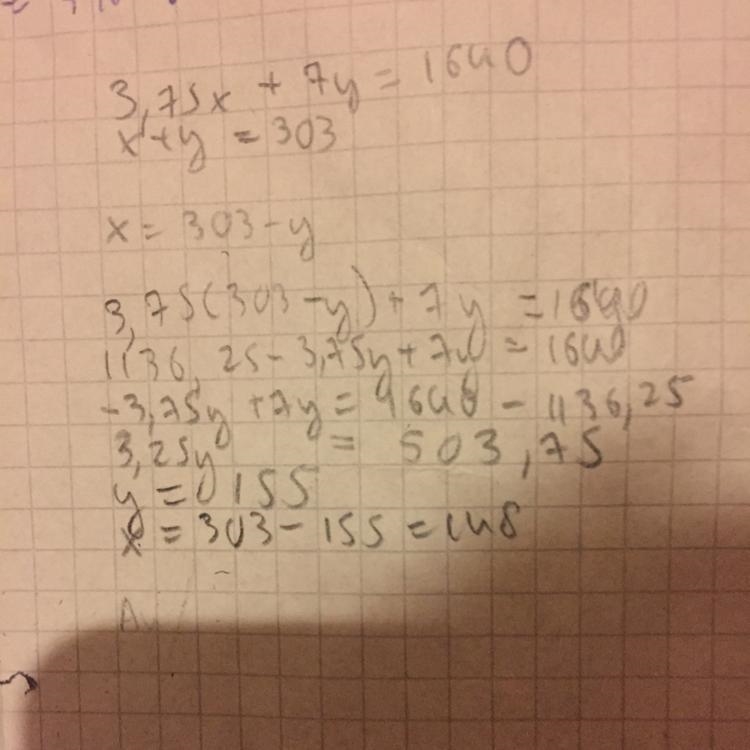 3,75x + 7y = 1640
x+y = 303
x = 303-y
3,75(303-y)+7y = 1640
1136,25-3,75y+7y = 1640
-3,75y+7y = 1640-1136,25
3,25y = 503,75
y = 155
x = 303-155 = 148